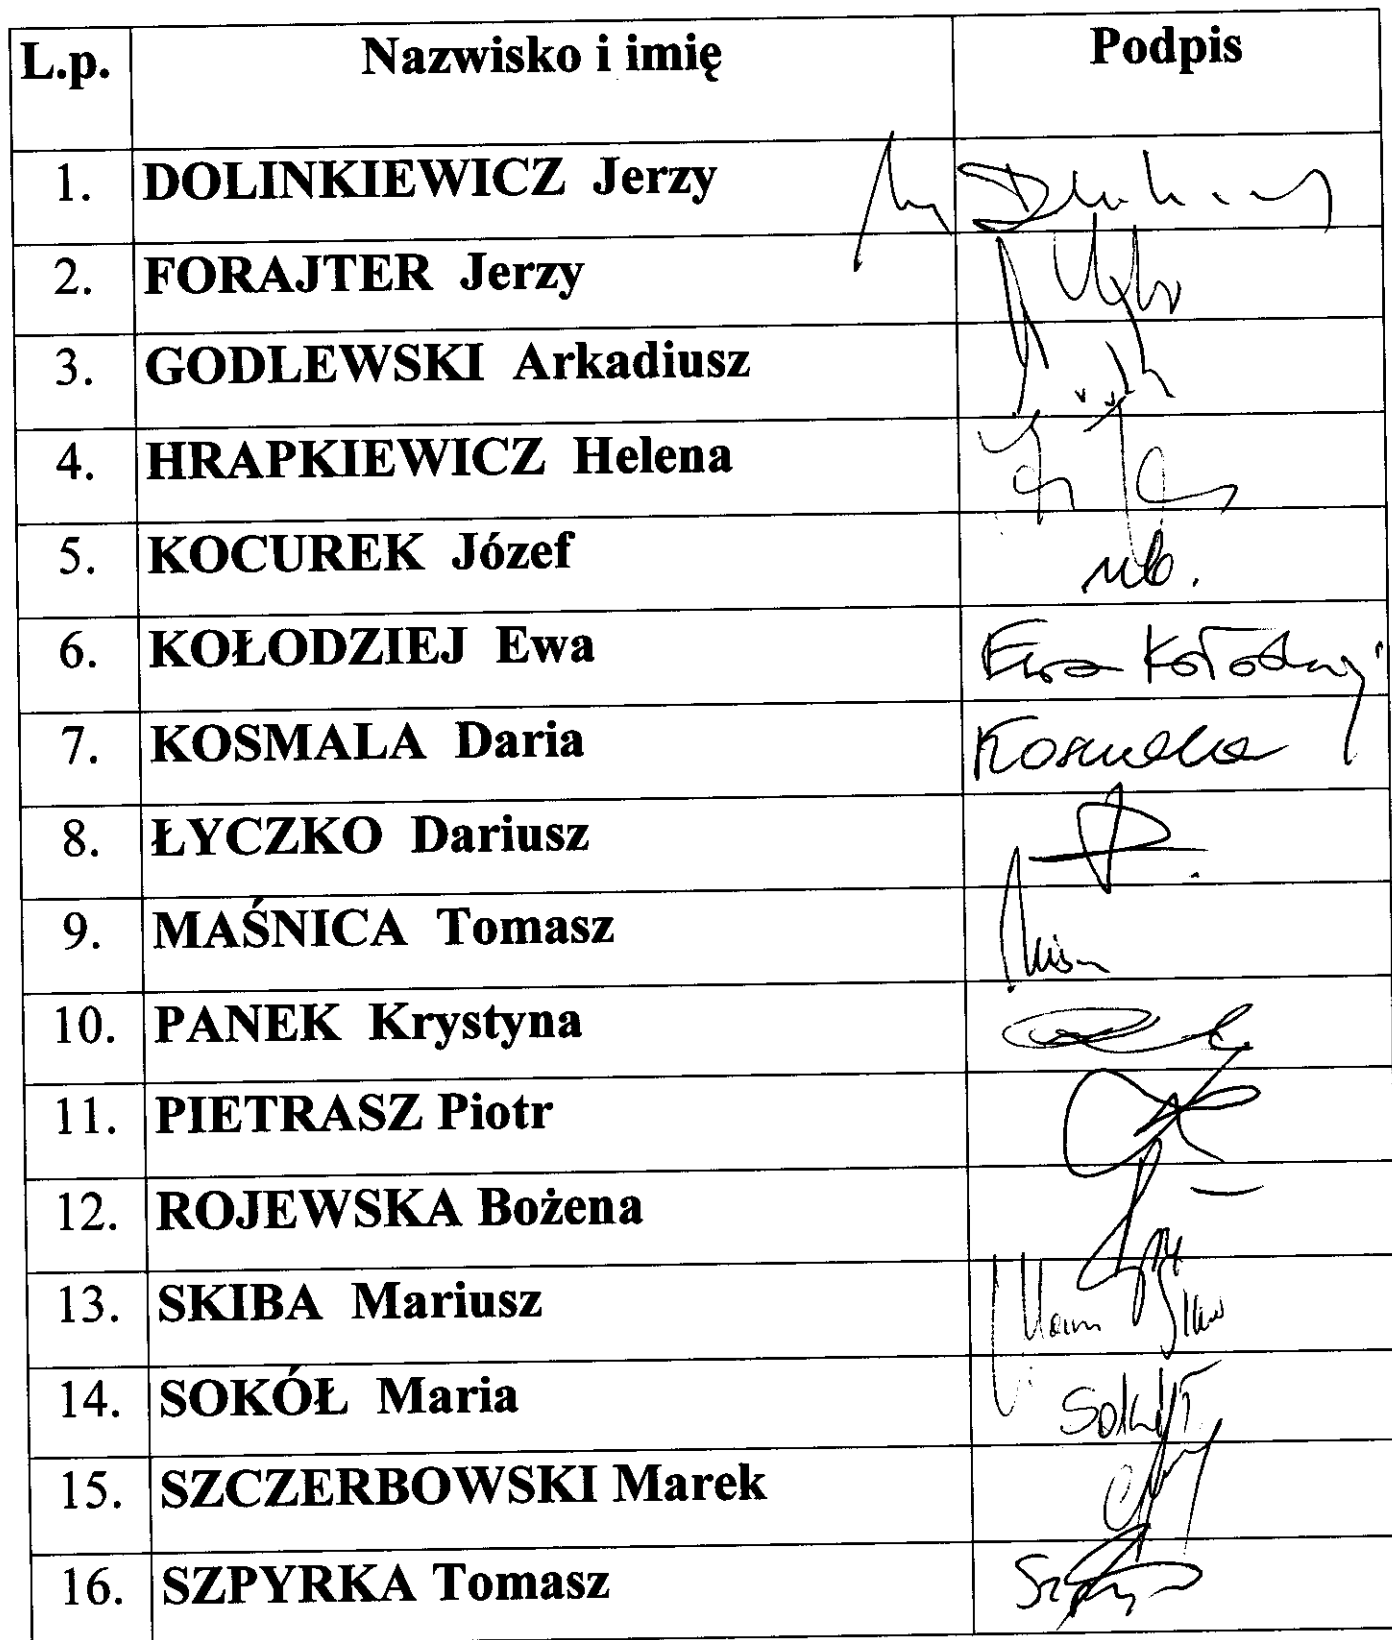 L.p. Nazwisko i imię Podpis
1. DOLINKIEWICZ Jerzy
2. FORAJTER Jerzy
3. GODLEWSKI Arkadiusz
4. HRAPKIEWICZ Helena
5. KOCUREK Józef nb.
6. KOŁODZIEJ Ewa Ewa Kołodziej
7. KOSMALA Daria Kosmala
8. ŁYCZKO Dariusz
9. MAŚNICA Tomasz
10. PANEK Krystyna
11. PIETRASZ Piotr
12. ROJEWSKA Bożena
13. SKIBA Mariusz
14. SOKÓŁ Maria Sokół
15. SZCZERBOWSKI Marek
16. SZPYRKA Tomasz